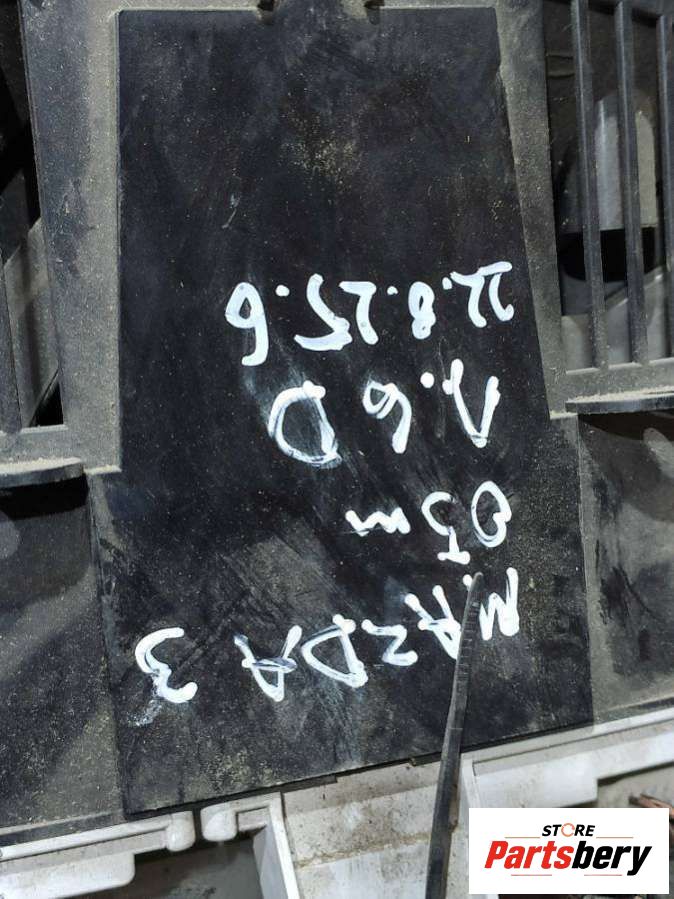 MAZDA 3
05m
1.6 D
22.8.25.6
STORE
Partsbery